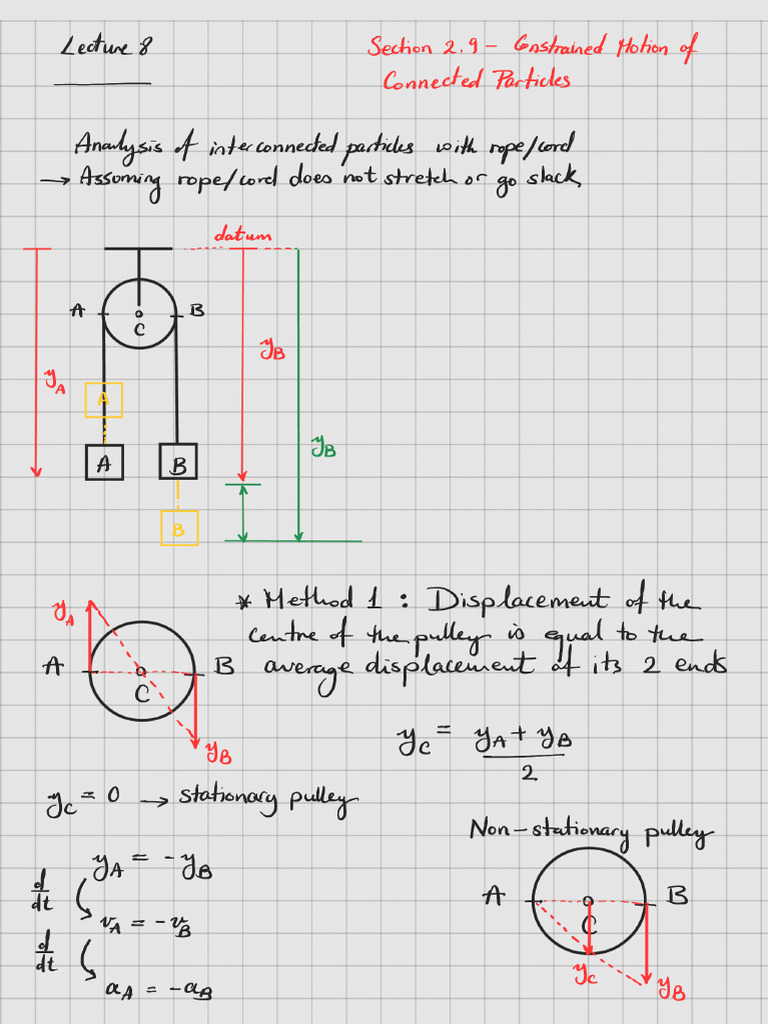 Lecture 8
Section 2.9 - Constrained Motion of
Connected Particles
Anarlysis of interconnected particles with rope/cord
→ Assuming rope/cord does not stretch or go slack,
datum
A
B
C
y_B
y_A
A
y_B
A
B
B
* Method 1 : Displacement of the
centre of the pulley is equal to the
average displacement of its 2 ends
y_A
A
B
C
y_B
y_C = (y_A + y_B)/2
y_C = 0 → stationary pulley
Non-stationary pulley
y_A = -y_B
d/dt
v_A = -v_B
d/dt
a_A = -a_B
A
B
C
y_C
y_B